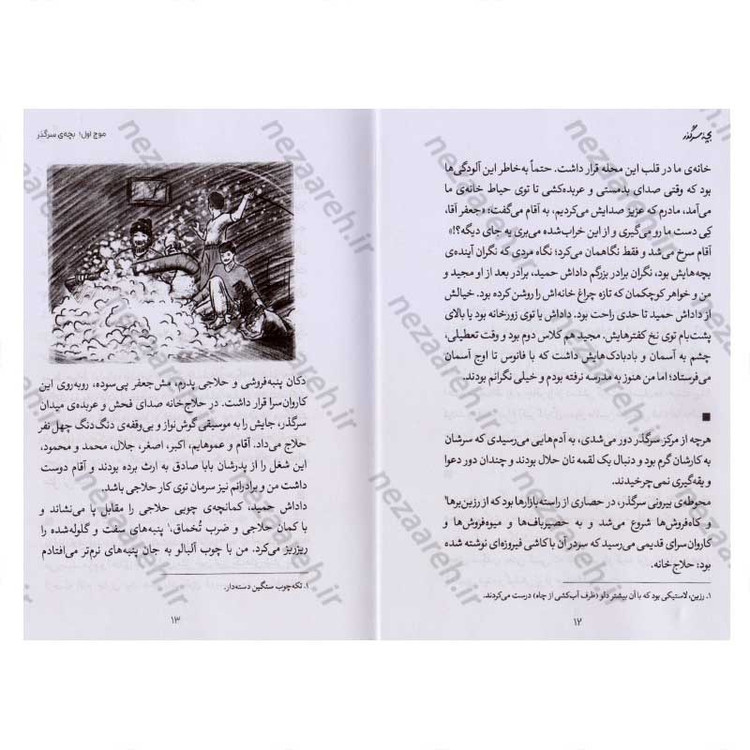 بچهٔ سرگذر
خانه‌ی ما در قلب این محله قرار داشت. حتماً به‌خاطر این آلودگی‌ها
بود که وقتی صدای بدمستی و عربده‌کشی تا توی حیاط خانه‌ی ما
می‌آمد، مادرم که عزیز صدایش می‌کردیم، به آقام می‌گفت: «جعفر آقا،
کِی دست ما رو می‌گیری و از این خراب‌شده می‌بری یه جای دیگه؟!»
آقام سرخ می‌شد و فقط نگاهمان می‌کرد؛ نگاه مردی که نگران آینده‌ی
بچه‌هایش بود، نگران برادر بزرگم داداش حمید، برادر بعد از او مجید و
من و خواهر کوچکمان که تازه چراغ خانه‌اش را روشن کرده بود. خیالش
از داداش حمید تا حدی راحت بود. داداش یا توی زورخانه بود یا بالای
پشت‌بام توی نخ کفترهایش. مجید هم کلاس دوم بود و وقت تعطیلی،
چشم به آسمان و بادبادک‌هایش داشت که با فانوس تا اوج آسمان
می‌فرستاد؛ اما من هنوز به مدرسه نرفته بودم و خیلی نگرانم بودند.
■
هرچه از مرکز سرگذر دور می‌شدی، به آدم‌هایی می‌رسیدی که سرشان
به کارشان گرم بود و دنبال یک لقمه نان حلال بودند و چندان دور دعوا
و یقه‌گیری نمی‌چرخیدند.
محوطه‌ی بیرونی سرگذر، در حصاری از راسته بازارها بود که از رزین‌برها۱
و کاه‌فروش‌ها شروع می‌شد و به حصیرباف‌ها و میوه‌فروش‌ها و
کاروان سرای قدیمی می‌رسید که سردر آن با کاشی فیروزه‌ای نوشته شده
بود: حلاج خانه.
۱. رزین، لاستیکی بود که با آن بیشتر دلو (ظرف آب‌کشی از چاه) درست می‌کردند.
۱۲
موج اول؛ بچه‌ی سرگذر
دکان پنبه‌فروشی و حلاجی پدرم، مش‌جعفر پی‌سوده، روبه‌روی این
کاروان‌سرا قرار داشت. در حلاج‌خانه صدای فحش و عربده‌ی میدان
سرگذر، جایش را به موسیقی گوش‌نواز و بی‌وقفه‌ی دنگ‌دنگ چهل نفر
حلاج می‌داد. آقام و عموهایم، اکبر، اصغر، جلال، محمد و محمود،
این شغل را از پدرشان بابا صادق به ارث برده بودند و آقام دوست
داشت من و برادرانم نیز سرمان توی کار حلاجی باشد.
داداش حمید، کمانچه‌ی چوبی حلاجی را مقابل پا می‌نشاند و
با کمان حلاجی و ضرب تُخماق،۱ پنبه‌های سفت و گلوله‌شده را
ریزریز می‌کرد. من با چوب آلبالو به جان پنبه‌های نرم‌تر می‌افتادم
۱. تکه‌چوب سنگین دسته‌دار.
۱۳
nezaareh.ir
nezaareh.ir
nezaareh.ir
nezaareh.ir
nezaareh.ir
nezaareh.ir